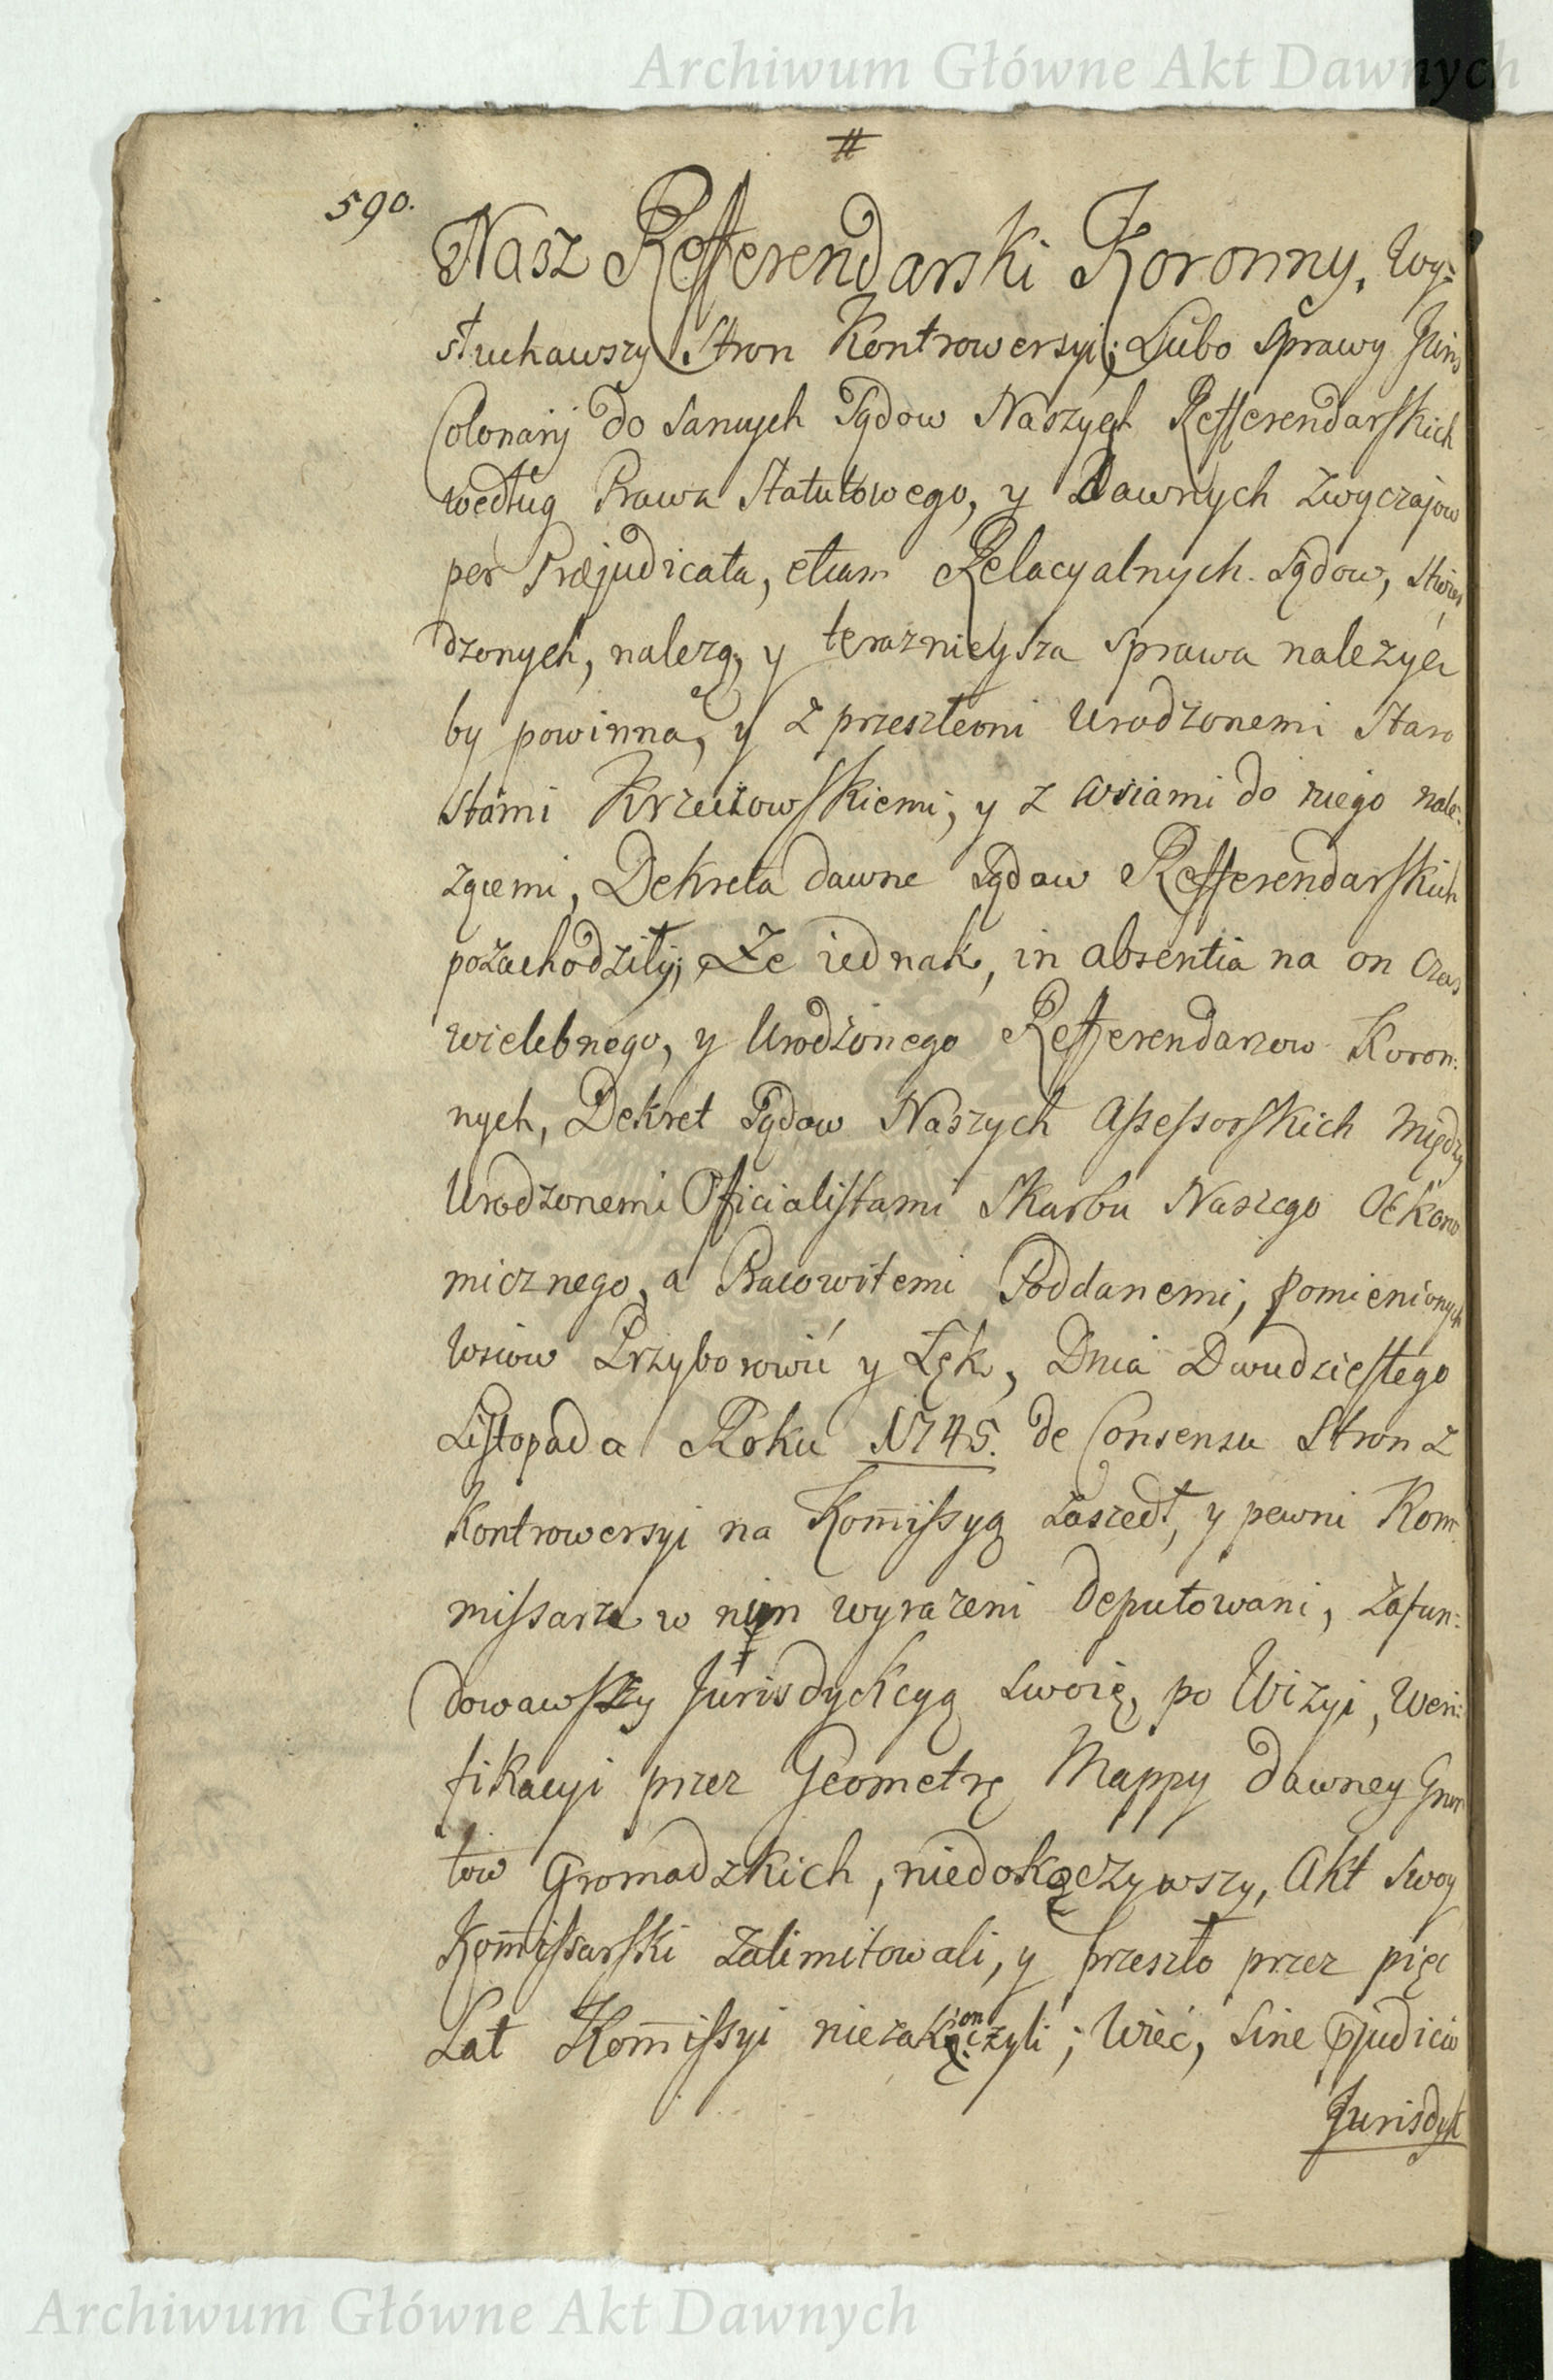 Archiwum Główne Akt Dawnych
#
590.
Nasz Refferendarski Koronny, Wy=
słuchawszy Stron Kontrowersyi; Lubo Sprawy Juris
Colonarij do samych Sądow Naszych Refferendarskich
według Prawa Statutowego, y Dawnych zwyczajow
per Præjudicata, etiam Relacyalnych Sądow, stwier
dzonych, nalezą, y teraznieysza sprawa nalezyć
by powinna, y z przeszłemi Urodzonemi Staro
stami Krzeczowskiemi, y z wsiami do niego nale=
zącemi, Dekreta dawne Sądow Refferendarskich
pozachodziły; Ze iednak, in absentia na on Czas
wielebnego, y Urodzonego Refferendarzow Koron=
nych, Dekret Sądow Naszych Assessorskich Między
Urodzonemi Officialistami Skarbu Naszego Oekono
micznego, a Pracowitemi Poddanemi, pomienionych
wsiow Przyborowić y Łęk, Dnia Dwudziestego
Listopada Roku 1745. de Consensu Stron z
Kontrowersyi na Kom̃issyą zaszedł, y pewni Kom
missarze w nim wyrazeni deputowani, zafun=
dowawszy Jurisdykcyą swoię, po Wizyi, Weri=
fikacyi przez Geometrę Mappy dawney Grun
tow Gromadzkich, niedokączywszy, Akt swoy
Kom̃issarski zalimitowali, y przeszło przez pięc
Lat Kom̃issyi niezakończyli; Więć, Sine pjudicio
Jurisdyk
Archiwum Główne Akt Dawnych